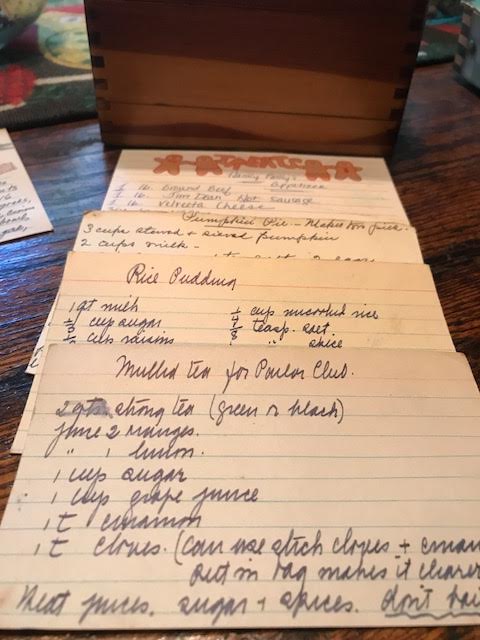 1 lb. Ground Beef Appetizer
1 lb. Jim Dean Hot Sausage
1 lb. Velveta Cheese
Pumpkin Pie - Makes two pies.
3 cups stewed + sieved pumpkin
2 cups milk -
Rice Pudding
1 qt milk 1/4 cup uncooked rice
1/2 cup sugar 1/8 teasp. salt.
1/2 cup raisins " " spice
Mulled tea for Parlor Club.
2 qts. strong tea (green or black)
June 2 oranges.
" 1 lemon.
1 cup sugar
1 cup grape juice
1 t cinnamon
1 t cloves. (can use stick cloves +
put in bag makes it clearer
Heat juices, sugar + spices. don't